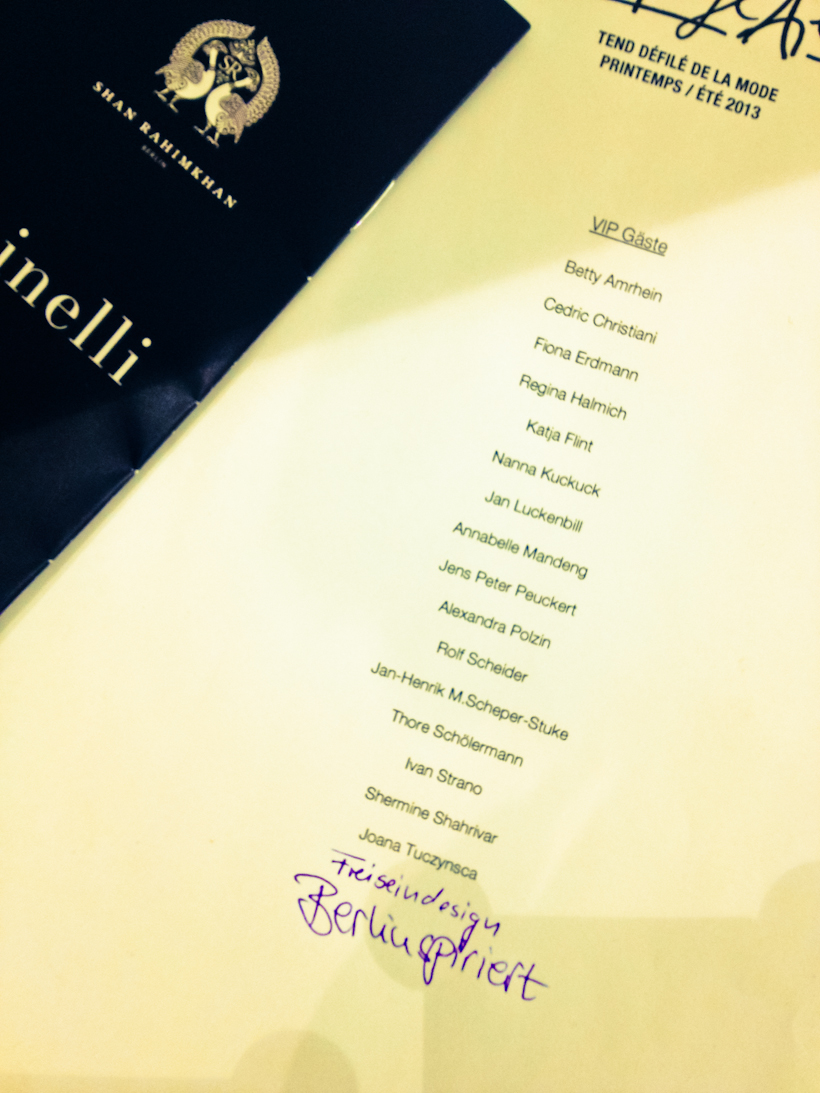 SR
SHAN RAHIMKHAN
BERLIN
inelli
TEND DÉFILÉ DE LA MODE
PRINTEMPS / ÉTÉ 2013
VIP Gäste
Betty Amrhein
Cedric Christiani
Fiona Erdmann
Regina Halmich
Katja Flint
Nanna Kuckuck
Jan Luckenbill
Annabelle Mandeng
Jens Peter Peuckert
Alexandra Polzin
Rolf Scheider
Jan-Henrik M.Scheper-Stuke
Thore Schölermann
Ivan Strano
Shermine Shahrivar
Joana Tuczynsca
Freiseindesign
Berlinspiriert